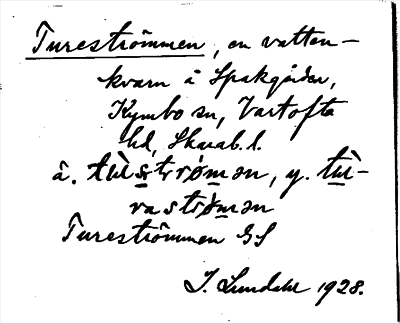 Tureströmmen, en vatten-
kvarn å Spakgården,
Kymbo sn, Vartofta
hd, Skarab. l.
ä. tùströmən, y. tù-
raströmən
Tureströmmen GS
I. Lundahl 1928.